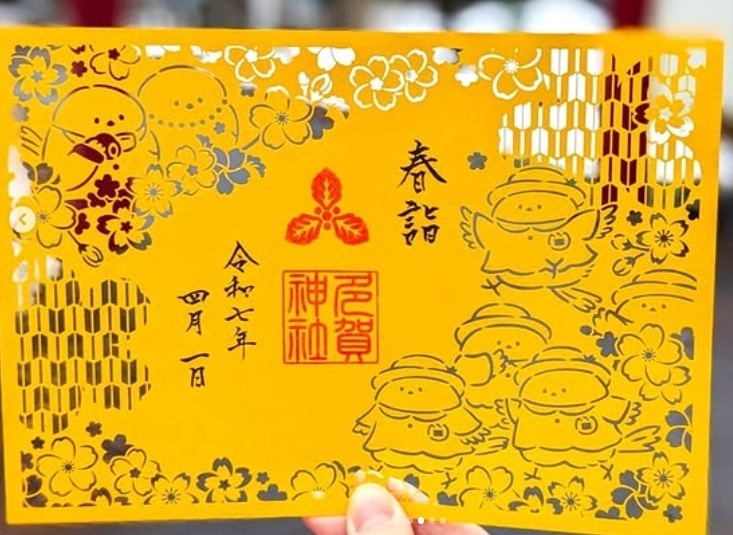 春詣
多賀
神社
令和七年
四月一日